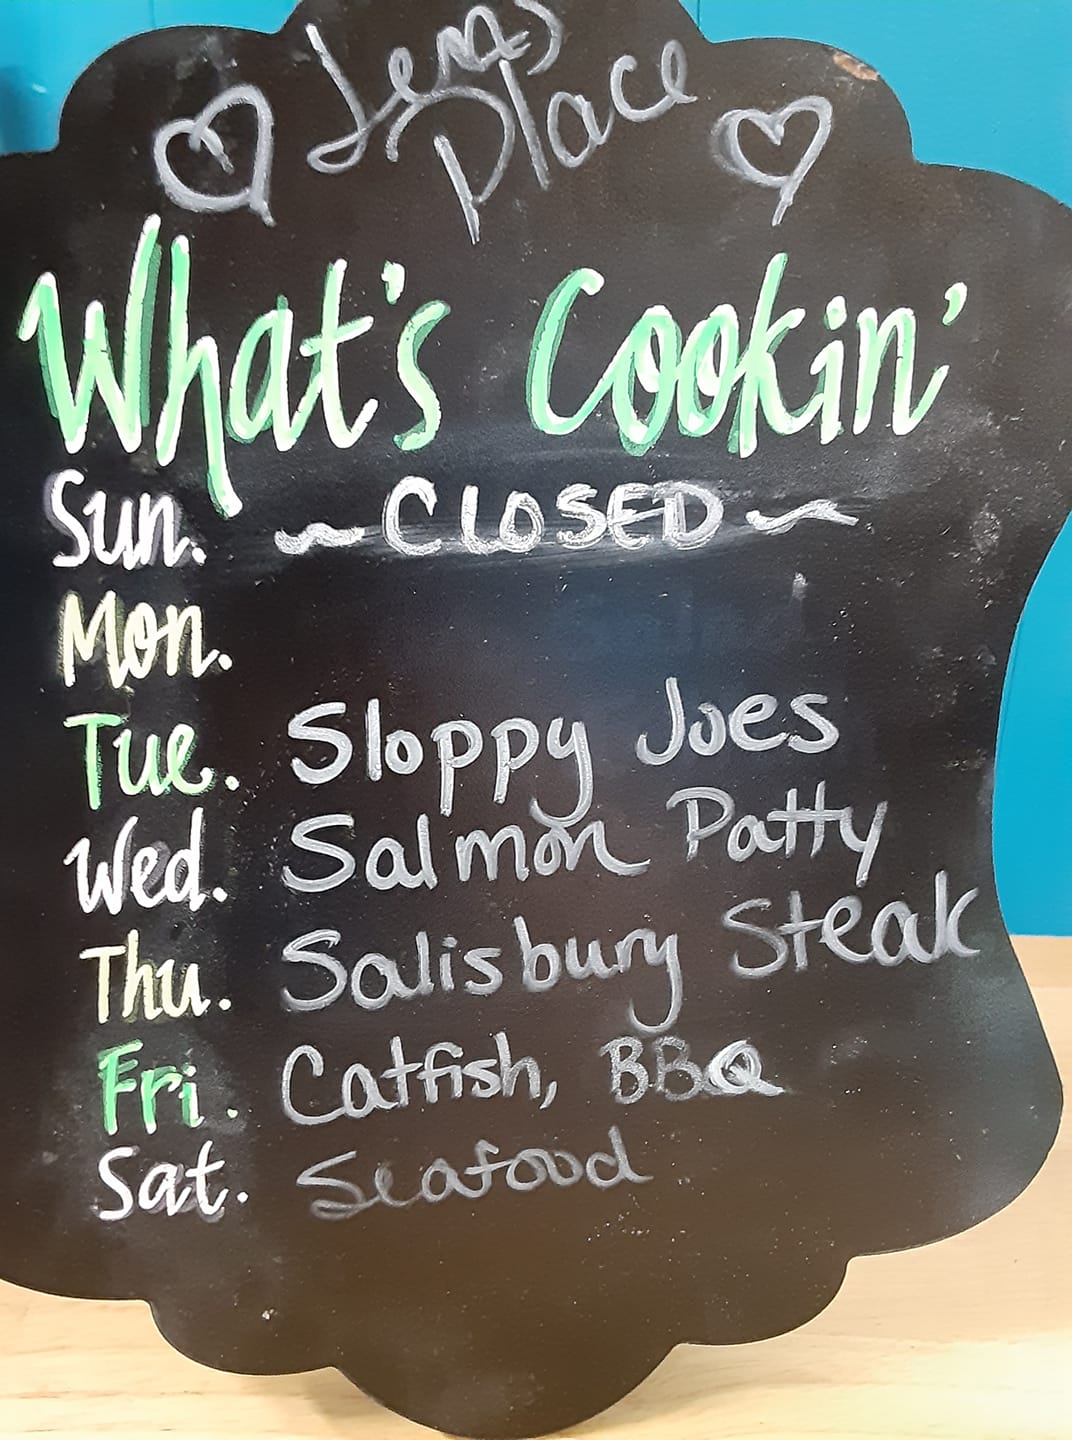 Jena's
Place
What's Cookin'
Sun. ~ CLOSED ~
Mon.
Tue. Sloppy Joes
Wed. Salmon Patty
Thu. Salisbury Steak
Fri. Catfish, BBQ
Sat. Seafood